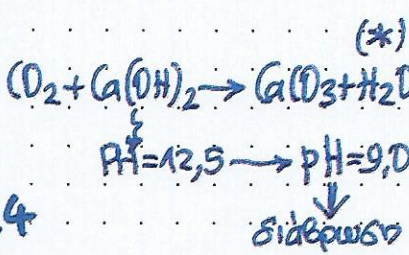 (*)
CO₂+Ca(OH)₂→CaCO₃+H₂O
pH=12,5→pH=9,0
↓
4 διάβρωση